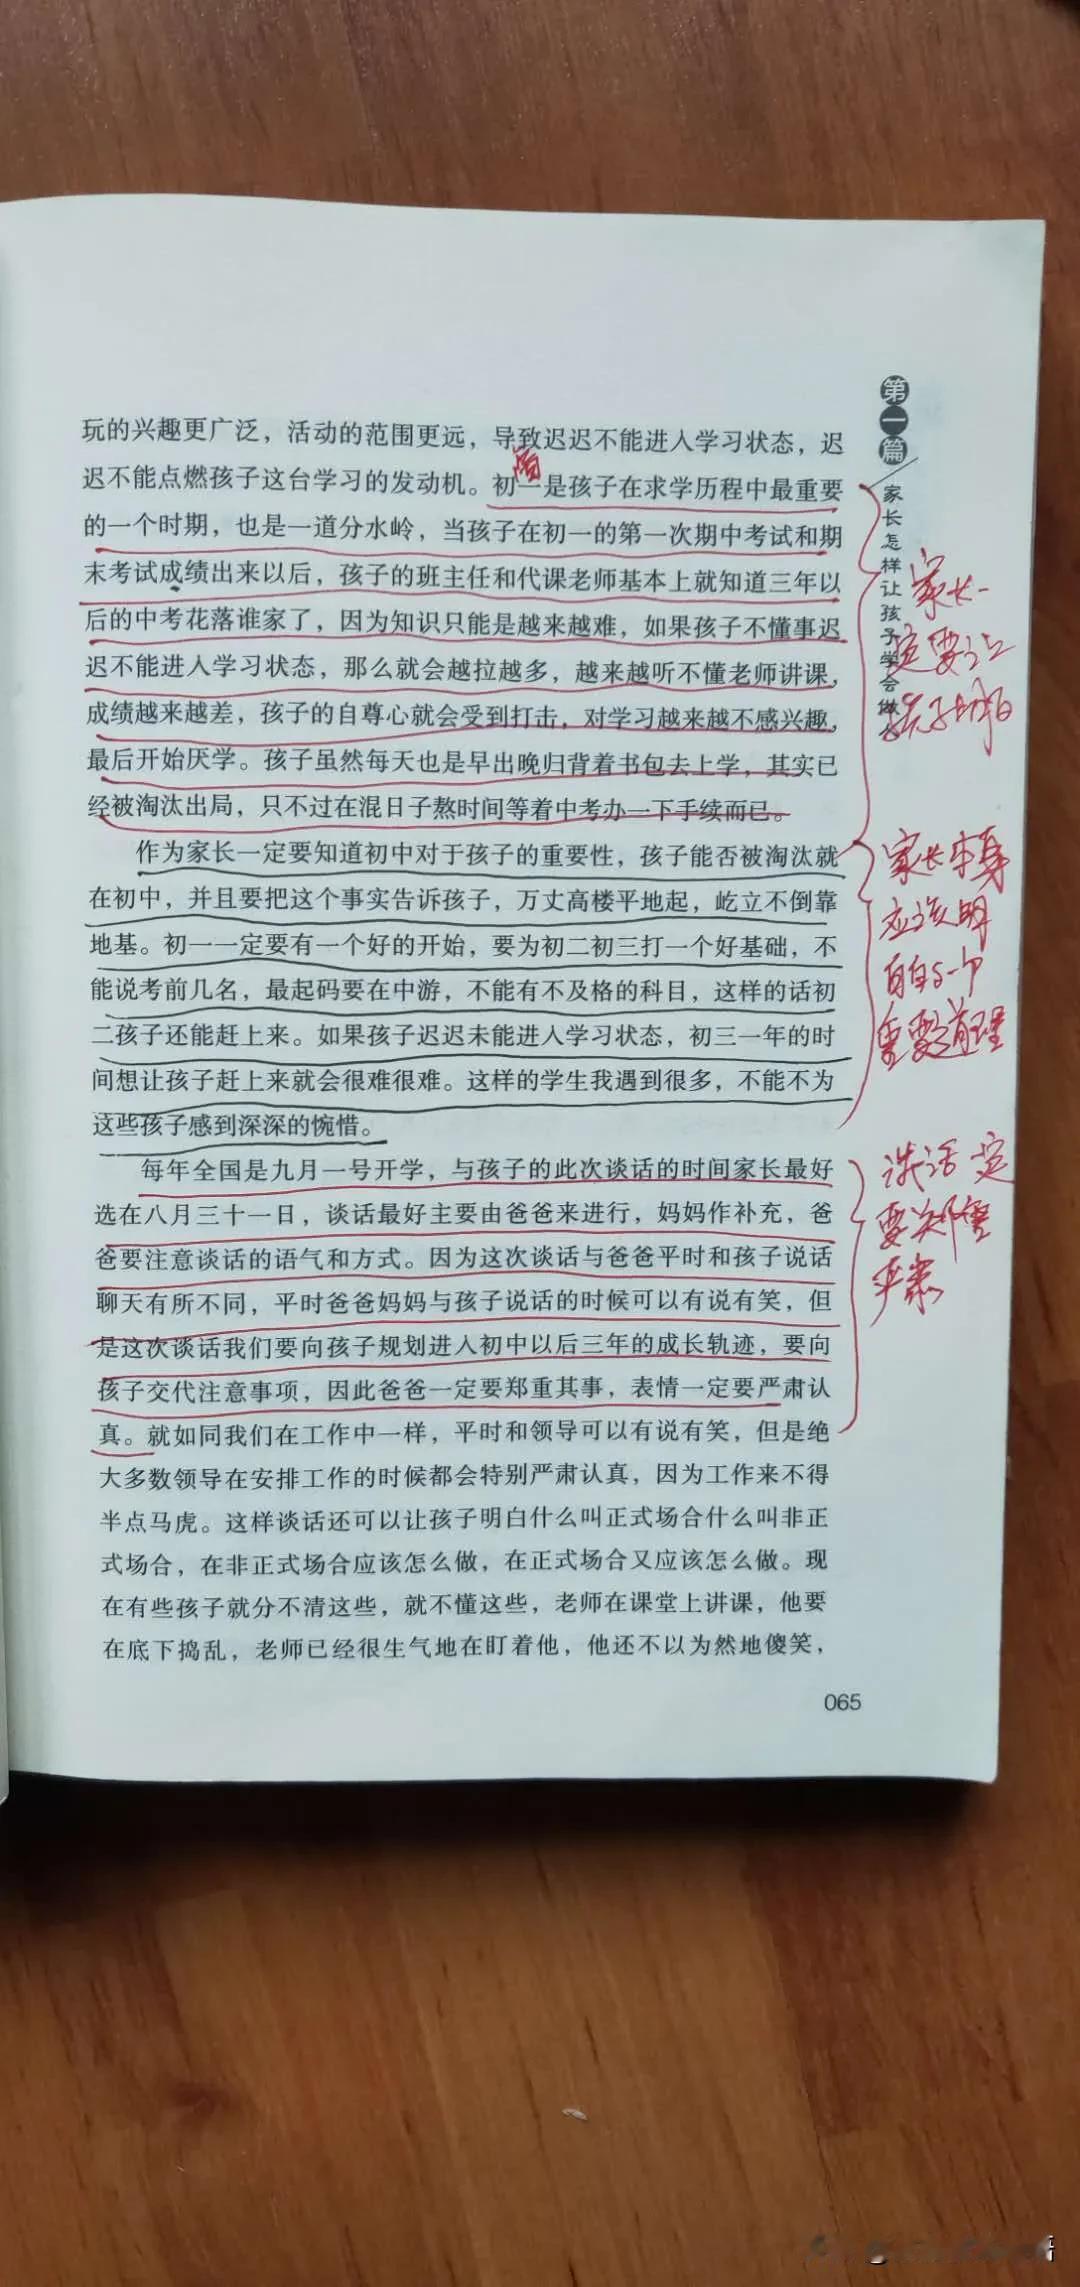 玩的兴趣更广泛，活动的范围更远，导致迟迟不能进入学习状态，迟
迟不能点燃孩子这台学习的发动机。初一是孩子在求学历程中最重要
的一个时期，也是一道分水岭，当孩子在初一的第一次期中考试和期
末考试成绩出来以后，孩子的班主任和代课老师基本上就知道三年以
后的中考花落谁家了，因为知识只能是越来越难，如果孩子不懂事迟
迟不能进入学习状态，那么就会越拉越多，越来越听不懂老师讲课，
成绩越来越差，孩子的自尊心就会受到打击，对学习越来越不感兴趣，
最后开始厌学。孩子虽然每天也是早出晚归背着书包去上学，其实已
经被淘汰出局，只不过在混日子熬时间等着中考办一下手续而已。
作为家长一定要知道初中对于孩子的重要性，孩子能否被淘汰就
在初中，并且要把这个事实告诉孩子，万丈高楼平地起，屹立不倒靠
地基。初一一定要有一个好的开始，要为初二初三打一个好基础，不
能说考前几名，最起码要在中游，不能有不及格的科目，这样的话初
二孩子还能赶上来。如果孩子迟迟未能进入学习状态，初三一年的时
间想让孩子赶上来就会很难很难。这样的学生我遇到很多，不能不为
这些孩子感到深深的惋惜。
每年全国是九月一号开学，与孩子的此次谈话的时间家长最好
选在八月三十一日，谈话最好主要由爸爸来进行，妈妈作补充，爸
爸要注意谈话的语气和方式。因为这次谈话与爸爸平时和孩子说话
聊天有所不同，平时爸爸妈妈与孩子说话的时候可以有说有笑，但
是这次谈话我们要向孩子规划进入初中以后三年的成长轨迹，要向
孩子交代注意事项，因此爸爸一定要郑重其事，表情一定要严肃认
真。就如同我们在工作中一样，平时和领导可以有说有笑，但是绝
大多数领导在安排工作的时候都会特别严肃认真，因为工作来不得
半点马虎。这样谈话还可以让孩子明白什么叫正式场合什么叫非正
式场合，在非正式场合应该怎么做，在正式场合又应该怎么做。现
在有些孩子就分不清这些，就不懂这些，老师在课堂上讲课，他要
在底下捣乱，老师已经很生气地在盯着他，他还不以为然地傻笑，
065
第一篇
家长怎样让孩子学会做
家长一
定要让
孩子明白
家长本身
应该明
白这一个
重要道理
谈话一定
要郑重
严肃